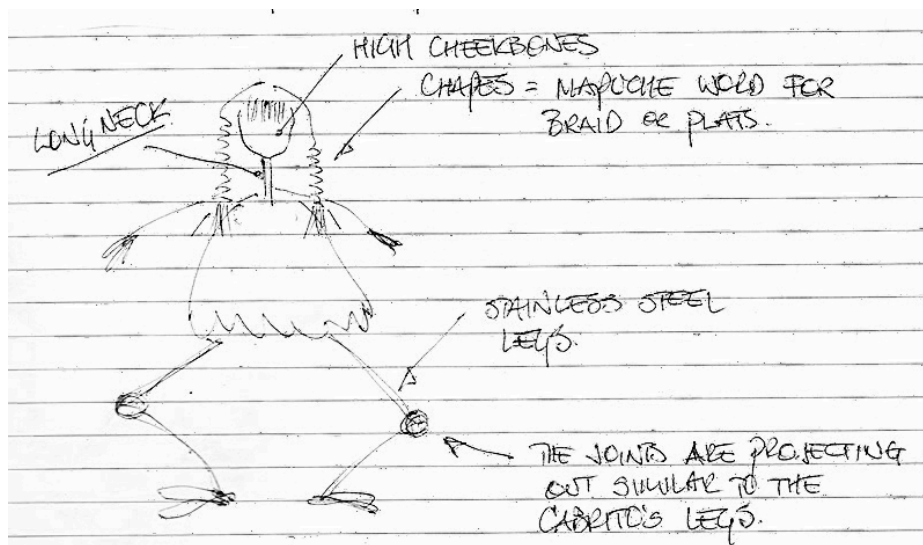 HIGH CHEEKBONES
CHAPES = MAPUCHE WORD FOR
BRAID OR PLATS.
LONG NECK
STAINLESS STEEL
LEGS.
THE JOINTS ARE PROJECTING
OUT SIMILAR TO THE
CABRITO'S LEGS.